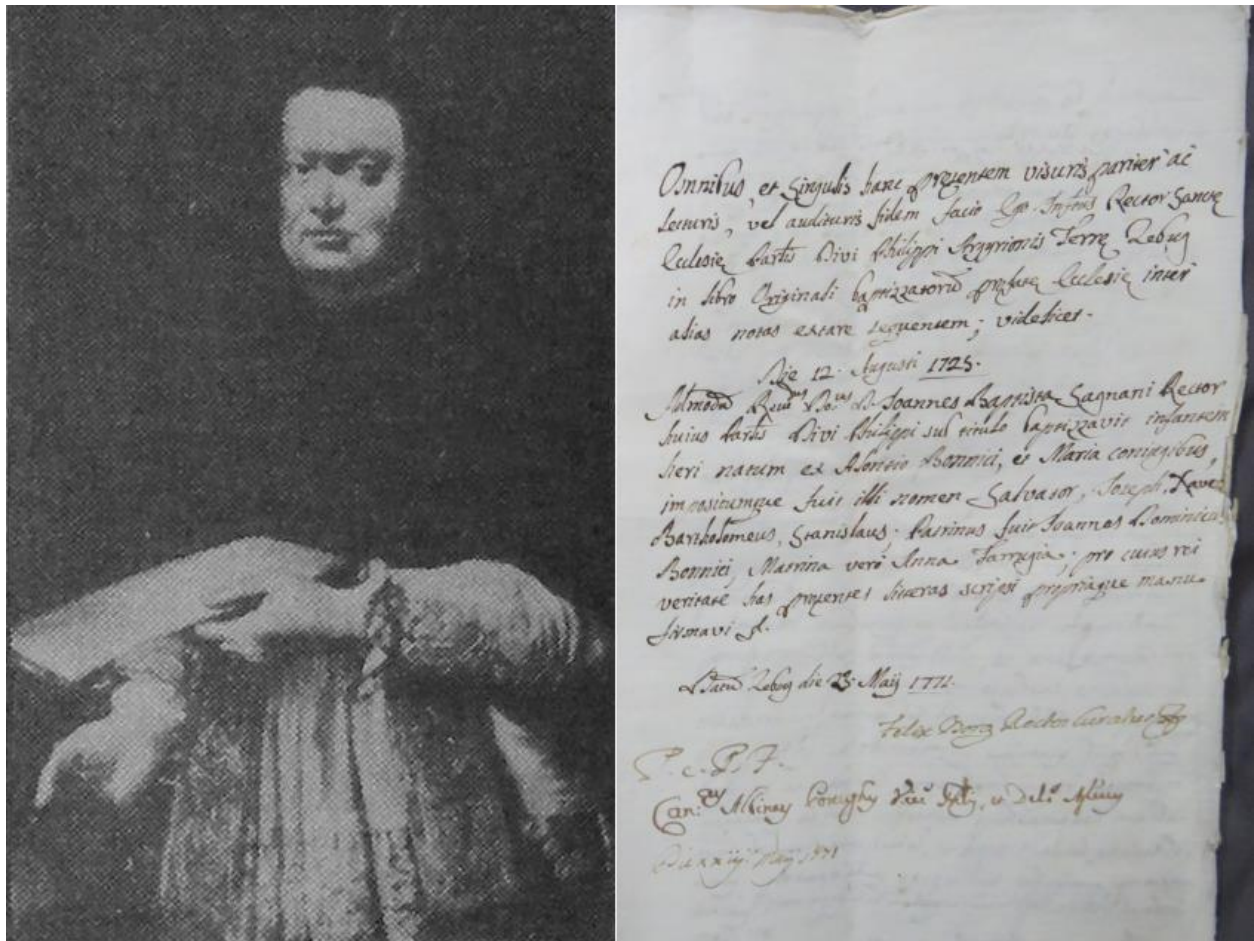 Omnibus, et Singulis hanc pręsentem visuris pariter ac
lecturis, vel audituris fidem facio Ego Inftus Rector Sanctę
Ecclesię Partis Divi Philippi Argyrionis Terrę Zebug
in libro Originali baptizzatorũ prefatę Ecclesię inter
alias notas extare sequentem; videlicet.
Die 12. Augusti 1725.
Admodũ Revdus Dnus D. Joannes Baptista Sagnani Rector
huius Partis Divi Philippi sub titulo baptizzavit infantem
heri natum ex Aloisio Bonnici, et Maria coniugibus,
impositumque fuit illi nomen Salvator, Joseph, Xaver
Bartholomeus, Stanislaus; Patrinus fuit Joannes Dominicus
Bonnici, Matrina verò Anna Farrugia; pro cuius rei
veritate has presentes litteras scripsi propriaque manu
firmavi
Datũ Zebug die 23 Maij 1771.
Felix Borg Rector Curatus
Can.
Maij 1771